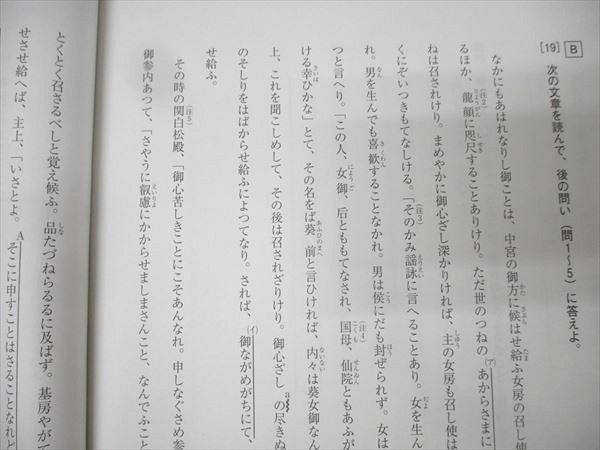 B
[19] 次の文章を読んで、後の問い（問1〜5）に答えよ。
なかにもあはれなりし御ことは、中宮の御方に候はせ給ふ女房の召し使
るほか、龍顔に咫尺することありけり。ただ世のつねのあからさまに
ねは召されけり。まめやかに御心ざし深かりければ、主の女房も召し使は
くにぞいつきもてなしける。「そのかみ謡詠に言へることあり。女を生ん
れ。男を生んでも喜歓することなかれ。男は侯にだも封ぜられず。女は
つと言へり。「この人、女御、后とももてなされ、国母、仙院ともあふが
ける幸ひかな」とて、その名をば葵前と言ひければ、内々は葵女御なん
上、これを聞こしめして、その後は召されざりけり。御心ざしの尽きぬ
のそしりをはばからせ給ふによつてなり。されば、御ながめがちにて、
せ給ふ。
その時の関白松殿、「御心苦しきことにこそあんなれ。申しなぐさめ参
御参内あつて、「さやうに叡慮にかからせましまさんこと、なんでふこと
とくとく召さるべしと覚え候ふ。品たづねらるるに及ばず。基房やがて
せさせ給へば、主上、「いさとよ。そこに申すことはさることなれど